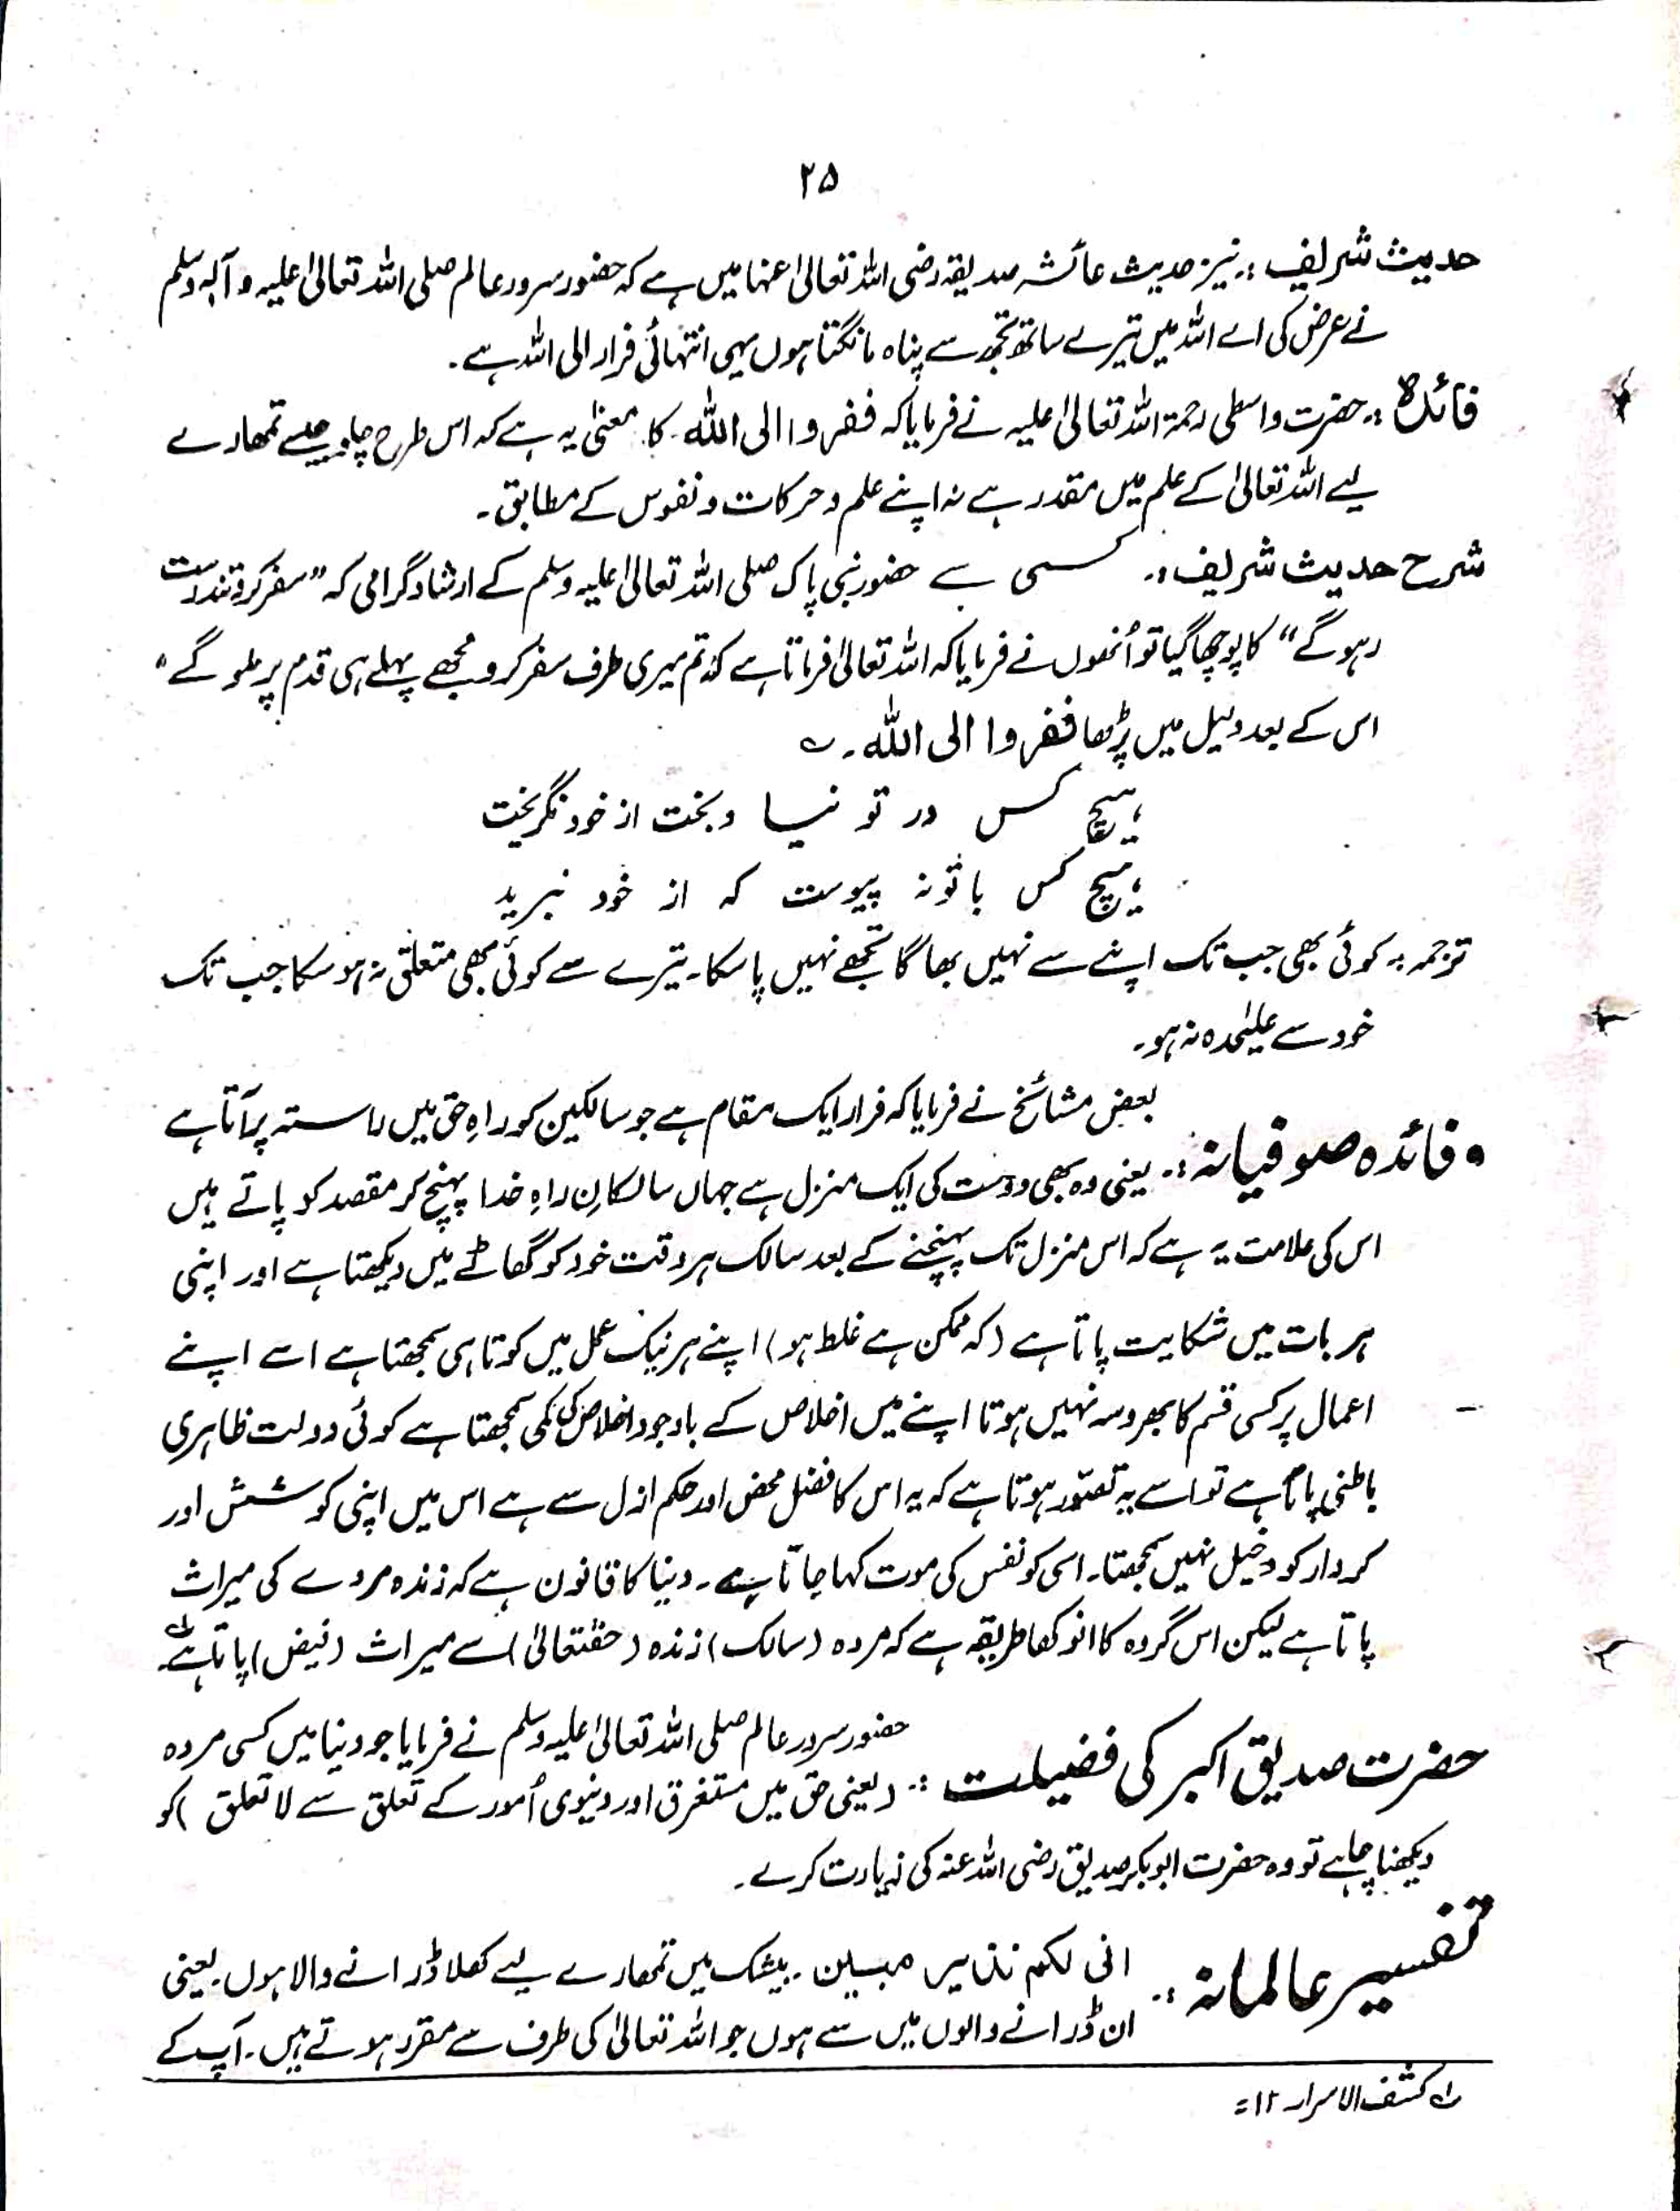 ۲۵
حدیث شریف :۔ نیز حدیث عائشہ صدیقہ رضی اللہ تعالیٰ عنہا میں ہے کہ حضور سرور عالم صلی اللہ تعالیٰ علیہ و آلہ وسلم
نے عرض کی اے اللہ میں تیرے ساتھ تجھ سے پناہ مانگتا ہوں یہی انتہائی فرار الی اللہ ہے۔
فائدہ :۔ حضرت واسطی رحمۃ اللہ تعالیٰ علیہ نے فرمایا کہ ففروا الی اللہ۔ کا معنیٰ یہ ہے کہ اس طرح چلو جیسے تمھارے
لیے اللہ تعالیٰ کے علم میں مقدر ہے نہ اپنے علم و حرکات و نفوس کے مطابق۔
شرح حدیث شریف :۔ کسی سے حضور نبی پاک صلی اللہ تعالیٰ علیہ وسلم کے ارشاد گرامی کہ "سفر کرو تندرست
رہو گے" کا پوچھا گیا تو اُنھوں نے فرمایا کہ اللہ تعالیٰ فرماتا ہے کہ تم میری طرف سفر کرو مجھے پہلے ہی قدم پر ملو گے"
اس کے بعد دلیل میں پڑھا ففروا الی اللہ۔ ؎
ہیچ کس در تو نیا ویخت از خود نگریخت
ہیچ کس با تو نہ پیوست کہ از خود نبرید
ترجمہ :۔ کوئی بھی جب تک اپنے سے نہیں بھاگا تجھے نہیں پا سکا۔ تیرے سے کوئی بھی متعلق نہ ہو سکا جب تک
خود سے علیٰحدہ نہ ہو۔
بعض مشائخ نے فرمایا کہ فرار ایک مقام ہے جو سالکین کو راہِ حق میں راستہ پر آتا ہے
و فائدہ صوفیانہ :۔ یعنی وہ بھی دوست کی ایک منزل ہے جہاں سالکانِ راہِ خدا پہنچ کر مقصد کو پاتے ہیں
اس کی علامت یہ ہے کہ اس منزل تک پہنچنے کے بعد سالک ہر وقت خود کو گھاٹے میں دیکھتا ہے اور اپنی
ہر بات میں شکایت پاتا ہے (کہ ممکن ہے غلط ہو) اپنے ہر نیک عمل میں کوتاہی سمجھتا ہے اسے اپنے
اعمال پر کسی قسم کا بھروسہ نہیں ہوتا اپنے میں اخلاص کے باوجود اخلاص کی کمی سمجھتا ہے کوئی دولت ظاہری
باطنی پاتا ہے تو اسے یہ تصوّر ہوتا ہے کہ یہ اس کا فضل محض اور حکم ازل سے ہے اس میں اپنی کوشش اور
کردار کو دخیل نہیں سمجھتا۔ اسی کو نفس کی موت کہا جاتا ہے۔ دنیا کا قانون ہے کہ زندہ مردے کی میراث
پاتا ہے لیکن اس گروہ کا انوکھا طریقہ ہے کہ مردہ (سالک) زندہ (حقتعالیٰ) سے میراث (فیض) پاتا ہے ؎۱
حضور سرور عالم صلی اللہ تعالیٰ علیہ وسلم نے فرمایا جو دنیا میں کسی مردہ
حضرت صدیق اکبر کی فضیلت :۔ (یعنی حق میں مستغرق اور دنیوی اُمور کے تعلق سے لا تعلق) کو
دیکھنا چاہے تو وہ حضرت ابوبکر صدیق رضی اللہ عنہ کی زیارت کرے۔
انی لکم نذیر مبین۔ بیشک میں تمھارے لیے کھلا ڈرانے والا ہوں۔ یعنی
تفسیر عالمانہ :۔ ان ڈرانے والوں میں سے ہوں جو اللہ تعالیٰ کی طرف سے مقرر ہوتے ہیں۔ آپ کے
؎۱ کشف الاسرار ۱۲=